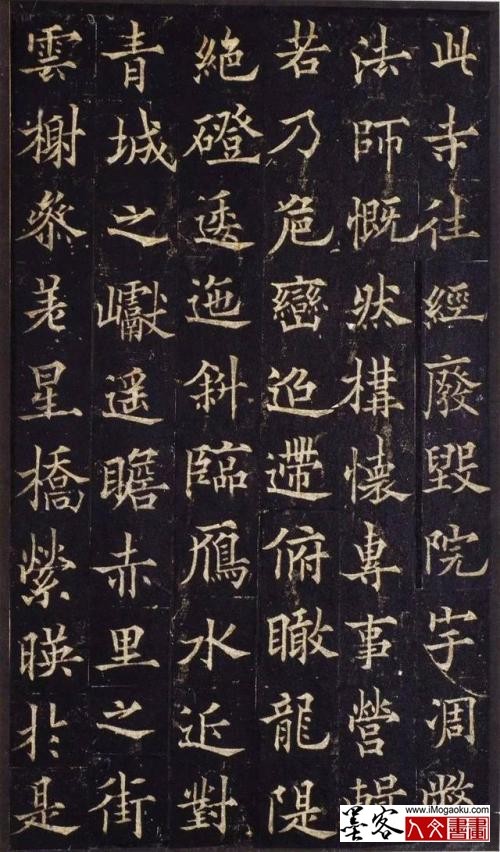 此寺往經廢毀院宇凋
法師慨然構懷專事營輯
若乃危巒迢遰俯瞰龍隄
絶磴逶迤斜臨鴈水近對
青城之巘遥瞻赤里之街
雲榭叅差星橋縈暎於是
墨客
www.iMogaoku.com
人文書畫